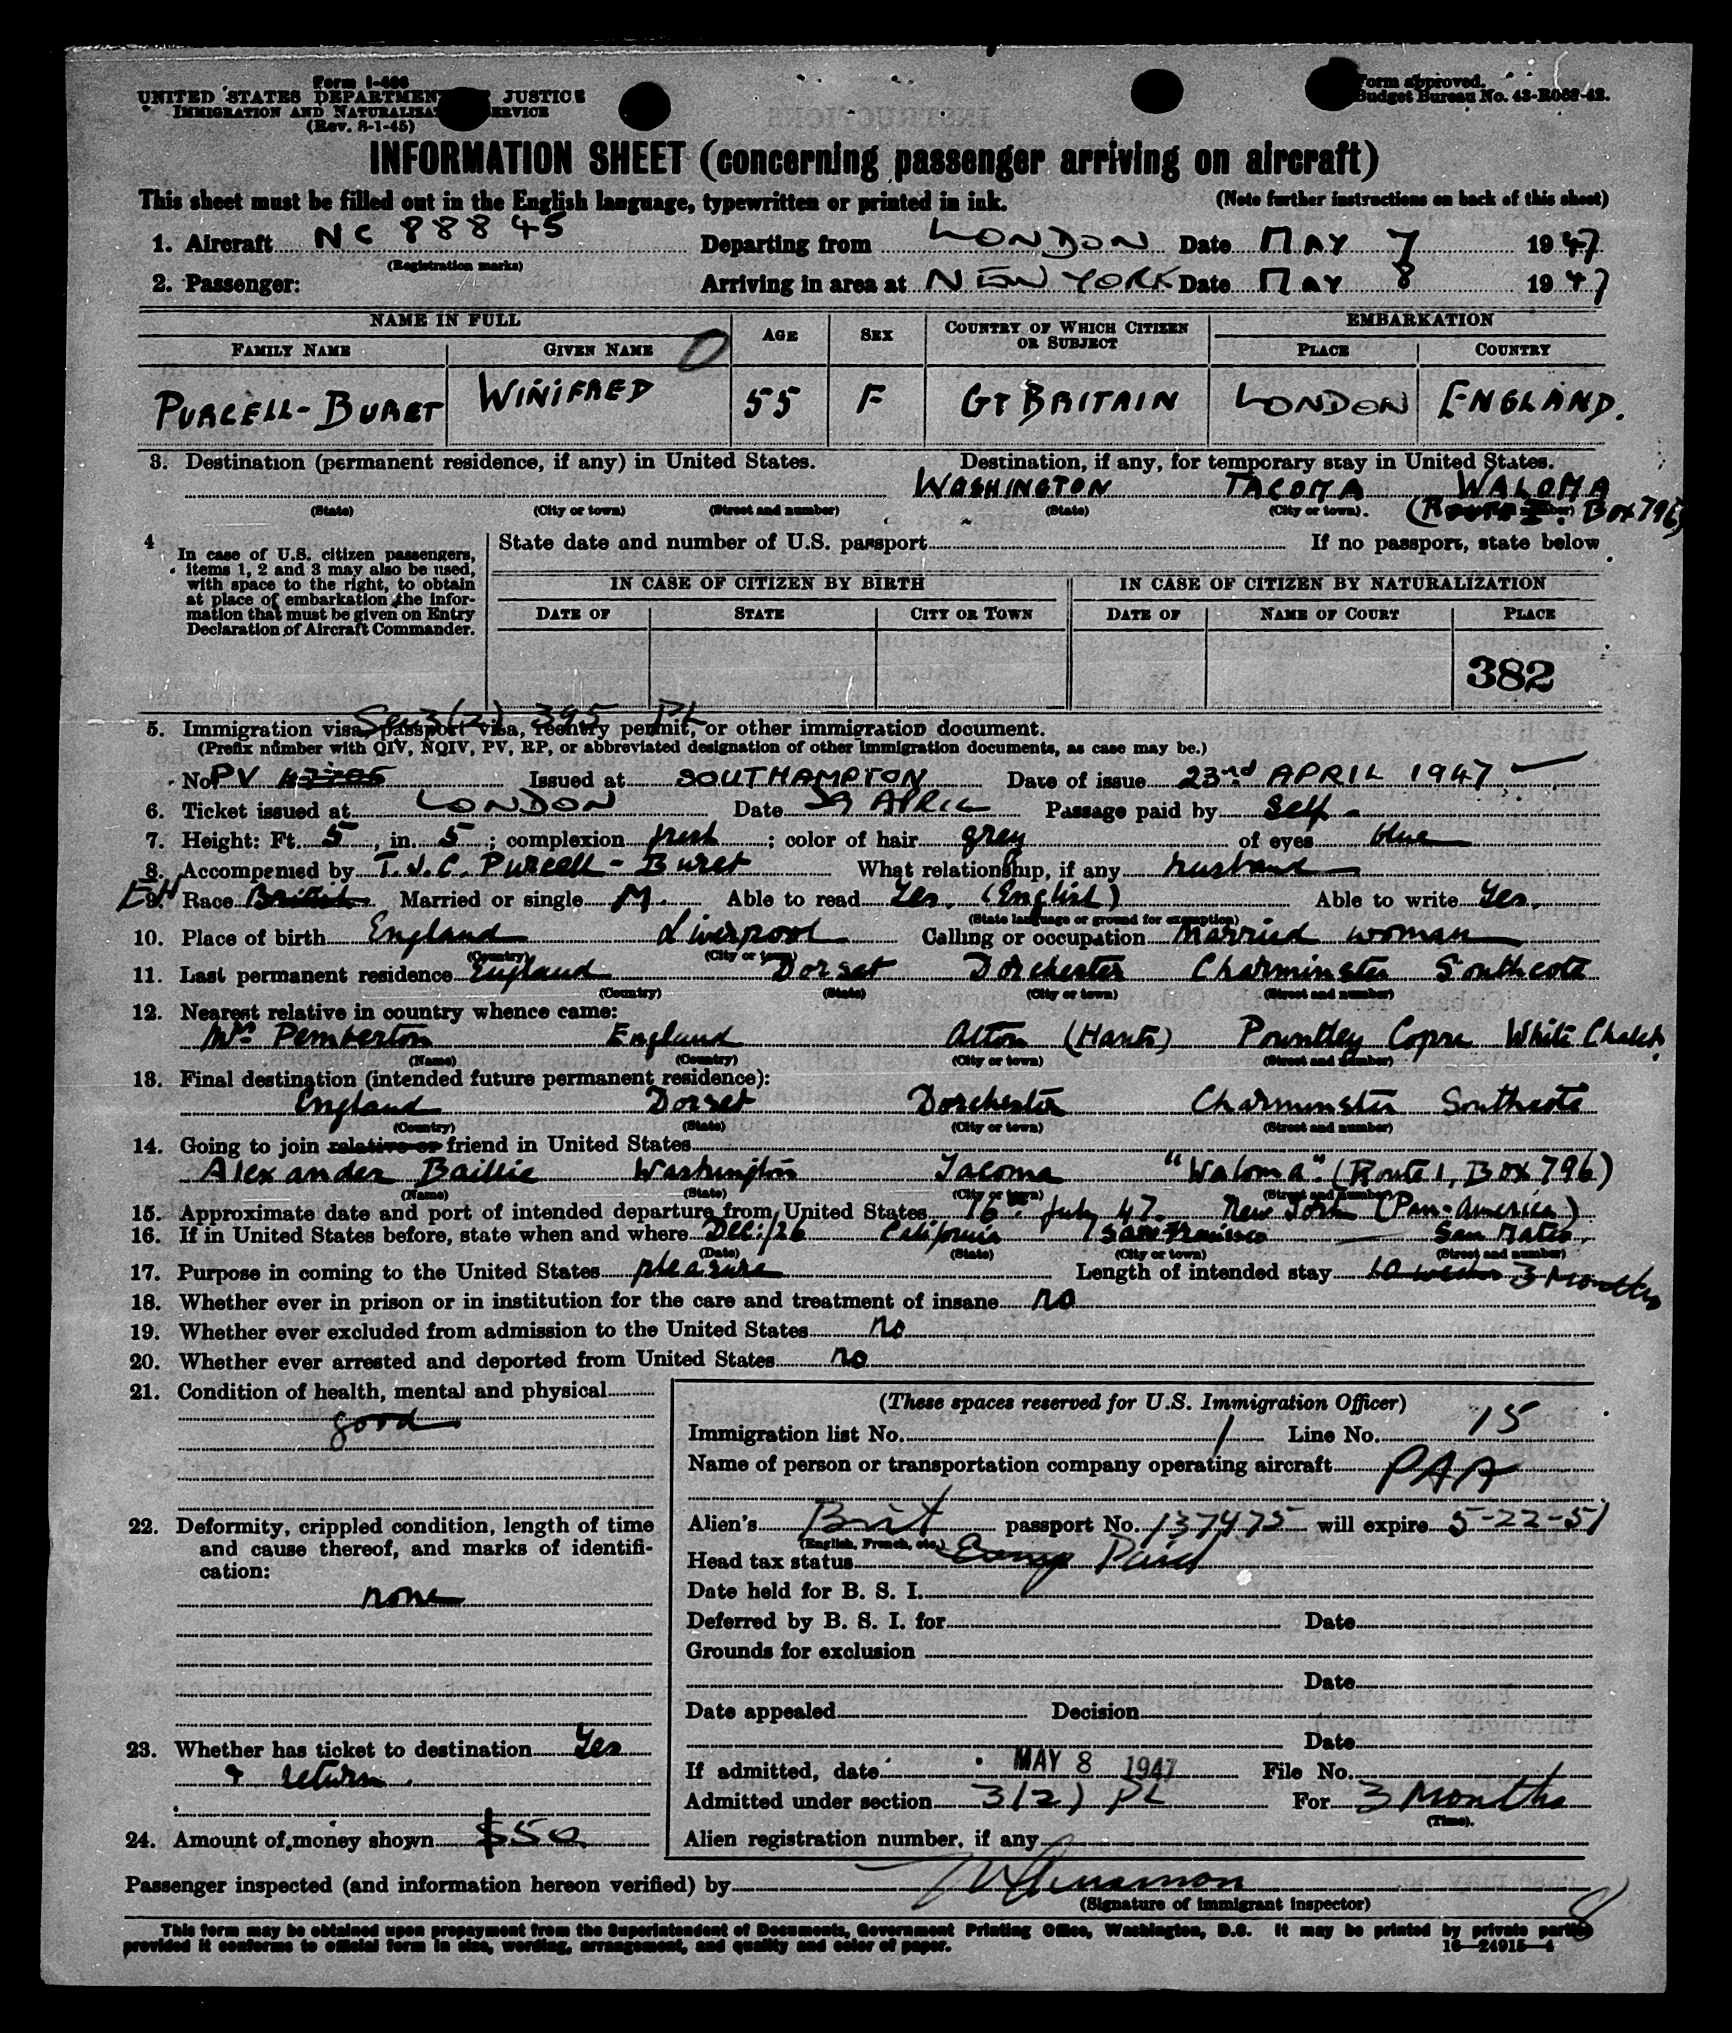 Form I-466
UNITED STATES DEPARTMENT JUSTICE
IMMIGRATION AND NATURALIZAT SERVICE
(Rev. 8-1-45)
Form approved.
Budget Bureau No. 43-R063-42.
INFORMATION SHEET (concerning passenger arriving on aircraft)
This sheet must be filled out in the English language, typewritten or printed in ink. (Note further instructions on back of this sheet)
1. Aircraft NC 88845 Departing from LONDON Date MAY 7 1947
(Registration marks)
2. Passenger: Arriving in area at NEW YORK Date MAY 8 1947
NAME IN FULL AGE SEX COUNTRY OF WHICH CITIZEN OR SUBJECT EMBARKATION
FAMILY NAME GIVEN NAME PLACE COUNTRY
PURCELL-BURET WINIFRED 55 F GT BRITAIN LONDON ENGLAND.
3. Destination (permanent residence, if any) in United States. Destination, if any, for temporary stay in United States.
WASHINGTON TACOMA WALOMA
(State) (City or town) (Street and number) (State) (City or town). (ROUTE I. BOX 796)
4 In case of U.S. citizen passengers, items 1, 2 and 3 may also be used, with space to the right, to obtain at place of embarkation the information that must be given on Entry Declaration of Aircraft Commander.
State date and number of U.S. passport If no passport, state below
IN CASE OF CITIZEN BY BIRTH IN CASE OF CITIZEN BY NATURALIZATION
DATE OF STATE CITY OR TOWN DATE OF NAME OF COURT PLACE
382
Sec 3(2) 395 PL
5. Immigration visa, passport visa, reentry permit, or other immigration document.
(Prefix number with QIV, NQIV, PV, RP, or abbreviated designation of other immigration documents, as case may be.)
No. PV Issued at SOUTHAMPTON Date of issue 23rd APRIL 1947
6. Ticket issued at LONDON Date 29 APRIL Passage paid by Self
7. Height: Ft. 5, in. 5; complexion fresh; color of hair grey of eyes blue
8. Accompanied by T.J.C. Purcell-Buret What relationship, if any husband
9. Race British Married or single M. Able to read Yes. (English) Able to write Yes.
(State language or ground for exemption)
10. Place of birth England Liverpool Calling or occupation Married woman
(Country) (City or town)
11. Last permanent residence England Dorset Dorchester Charminster Southcote
(Country) (State) (City or town) (Street and number)
12. Nearest relative in country whence came:
Mrs Pemberton England Alton (Hants) Pountley Copse White Chalet.
(Name) (Country) (City or town) (Street and number)
13. Final destination (intended future permanent residence):
England Dorset Dorchester Charminster Southcote
(Country) (State) (City or town) (Street and number)
14. Going to join relative or friend in United States
Alexander Baillie Washington Tacoma "Waloma" (Route 1, Box 796)
(Name) (State) (City or town) (Street and number)
15. Approximate date and port of intended departure from United States 16th July 47. New York (Pan-America)
16. If in United States before, state when and where Dec:/26 California San Francisco San Mateo.
(Date) (State) (City or town) (Street and number)
17. Purpose in coming to the United States pleasure Length of intended stay 10 weeks 3 Months
18. Whether ever in prison or in institution for the care and treatment of insane no
19. Whether ever excluded from admission to the United States no
20. Whether ever arrested and deported from United States no
21. Condition of health, mental and physical
good
22. Deformity, crippled condition, length of time and cause thereof, and marks of identification:
none
23. Whether has ticket to destination Yes
& return.
24. Amount of money shown $50
(These spaces reserved for U.S. Immigration Officer)
Immigration list No. 1 Line No. 15
Name of person or transportation company operating aircraft PAA
Alien's Brit passport No. 137475 will expire 5-22-51
(English, French, etc.)
Head tax status Paid
Date held for B. S. I.
Deferred by B. S. I. for Date
Grounds for exclusion
Date
Date appealed Decision
Date
If admitted, date MAY 8 1947 File No.
Admitted under section 3(2) PL For 3 Months
(Time).
Alien registration number, if any
Passenger inspected (and information hereon verified) by
(Signature of immigrant inspector)
This form may be obtained upon prepayment from the Superintendent of Documents, Government Printing Office, Washington, D.C. It may be printed by private parties
provided it conforms to official form in size, wording, arrangement, and quality and color of paper. 16—24915-4